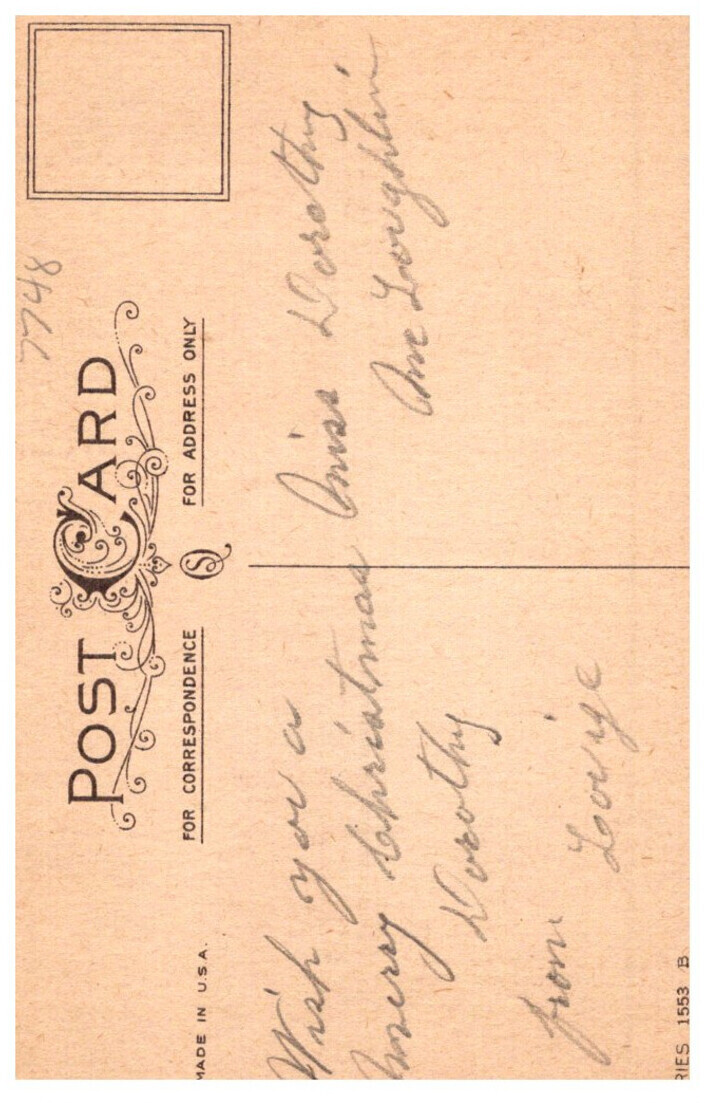 7748
POST CARD
FOR CORRESPONDENCE
FOR ADDRESS ONLY
MADE IN U.S.A.
Wish you a
merry Christmas
Dorothy
from
Miss Dorothy
Ane Loughlin
RIES 1553 B